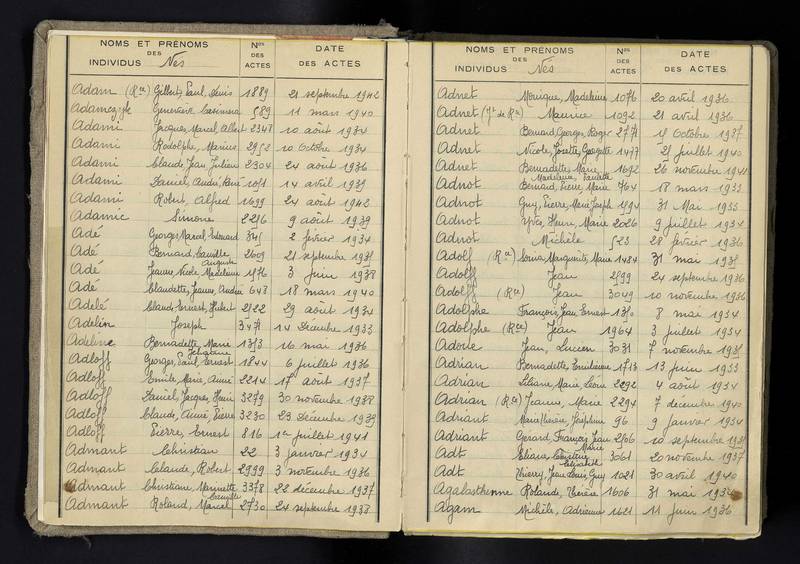 NOMS ET PRÉNOMS DES INDIVIDUS Nés Nos DES ACTES DATE DES ACTES
Adam (Rce) Gilbert, Paul, Denis 1889 21 septembre 1942
Adamczyk Geneviève 589 11 mars 1940
Adami Jacques, Marcel, Albert 2348 10 août 1934
Adami Rodolphe, Marius 2952 10 Octobre 1934
Adami Claude, Jean, Julien 2304 24 août 1936
Adami Daniel, André, René 1051 14 avril 1939
Adami Robert, Alfred 1699 24 août 1942
Adamic Simone 2256 9 août 1939
Adé Georges, Marcel, Edouard 345 2 février 1934
Adé Bernard, Camille Auguste 2609 21 septembre
Adé Jeanne, Nicole, Madeleine 1576 3 juin 1938
Adé Claudette, Jeanne, Andrée 648 18 mars 1940
Adelé Claude, Ernest, Hubert 2522 29 août 1934
Adelin Joseph 14 Décembre 1933
Adeline Bernadette, Marie Jehanne 1353 16 mai 1936
Adloff Georges, Paul, Ernest 1844 6 juillet 1936
Adloff Emile, Marie, Aimé 2214 17 août 1937
Adloff Daniel, Jacques, Henri 3279 30 novembre 1938
Adloff Claude, Aimé, Pierre 3230 23 Décembre 1939
Adloff Pierre, Ernest 816 1er juillet 1941
Admant Christian 22 3 janvier 1934
Admant Claude, Robert 2999 3 novembre 1936
Admant Christiane, Marinette Camille 3378 22 décembre 1937
Admant Roland, Marcel 2730 24 septembre 1938
NOMS ET PRÉNOMS DES INDIVIDUS Nés Nos DES ACTES DATE DES ACTES
Adnet Monique, Madeleine 1076 20 avril 1936
Adnet (Jt de Rce) Maurice 1092 21 avril 1936
Adnet Bernard, Georges, Roger 2771 Octobre 1937
Adnet Nicole, Josette, Georgette 1477 juillet 1940
Adnet Bernadette, Marie Madeleine, Paulette 1692 26 novembre 1941
Adnot Bernard, Pierre, Marie 764 18 mars 1933
Adnot Guy, Pierre, Marie, Joseph 1594 31 Mai 1933
Adnot Yves, Henri, Marie 2026 9 juillet 1934
Adnot Michèle 523 28 février 1936
Adolf (Rce) Marguerite, Marie 1424 31 mai
Adolff Jean 2599 24 septembre 1936
Adolff (Rce) Jean 3049 10 novembre 1936
Adolphe François, Jean, Ernest 1350 8 mai 1934
Adolphe (Rce) Jean 1964 3 juillet 1934
Adone Jean, Lucien 3031 7 novembre
Adrian Bernadette, Emilienne 1713 13 juin 1933
Adrian Liliane, Marie, Léonie 2292 4 août 1934
Adrian (Rce) Jeanne, Marie 2294 7 décembre 1940
Adriant Marie, Thérèse, Joséphine 96 9 janvier 1934
Adriant Gérard, François, Jean Marie 2506 10 septembre
Adt Eliane, Christine Elisabeth 3061 20 novembre 1937
Adt Thierry, Jean, Louis, Guy 1021 30 avril 1940
Agalasthenne Rolande, Thérèse 1606 31 mai
Agam Michèle, Adrienne 1621 11 juin 1936